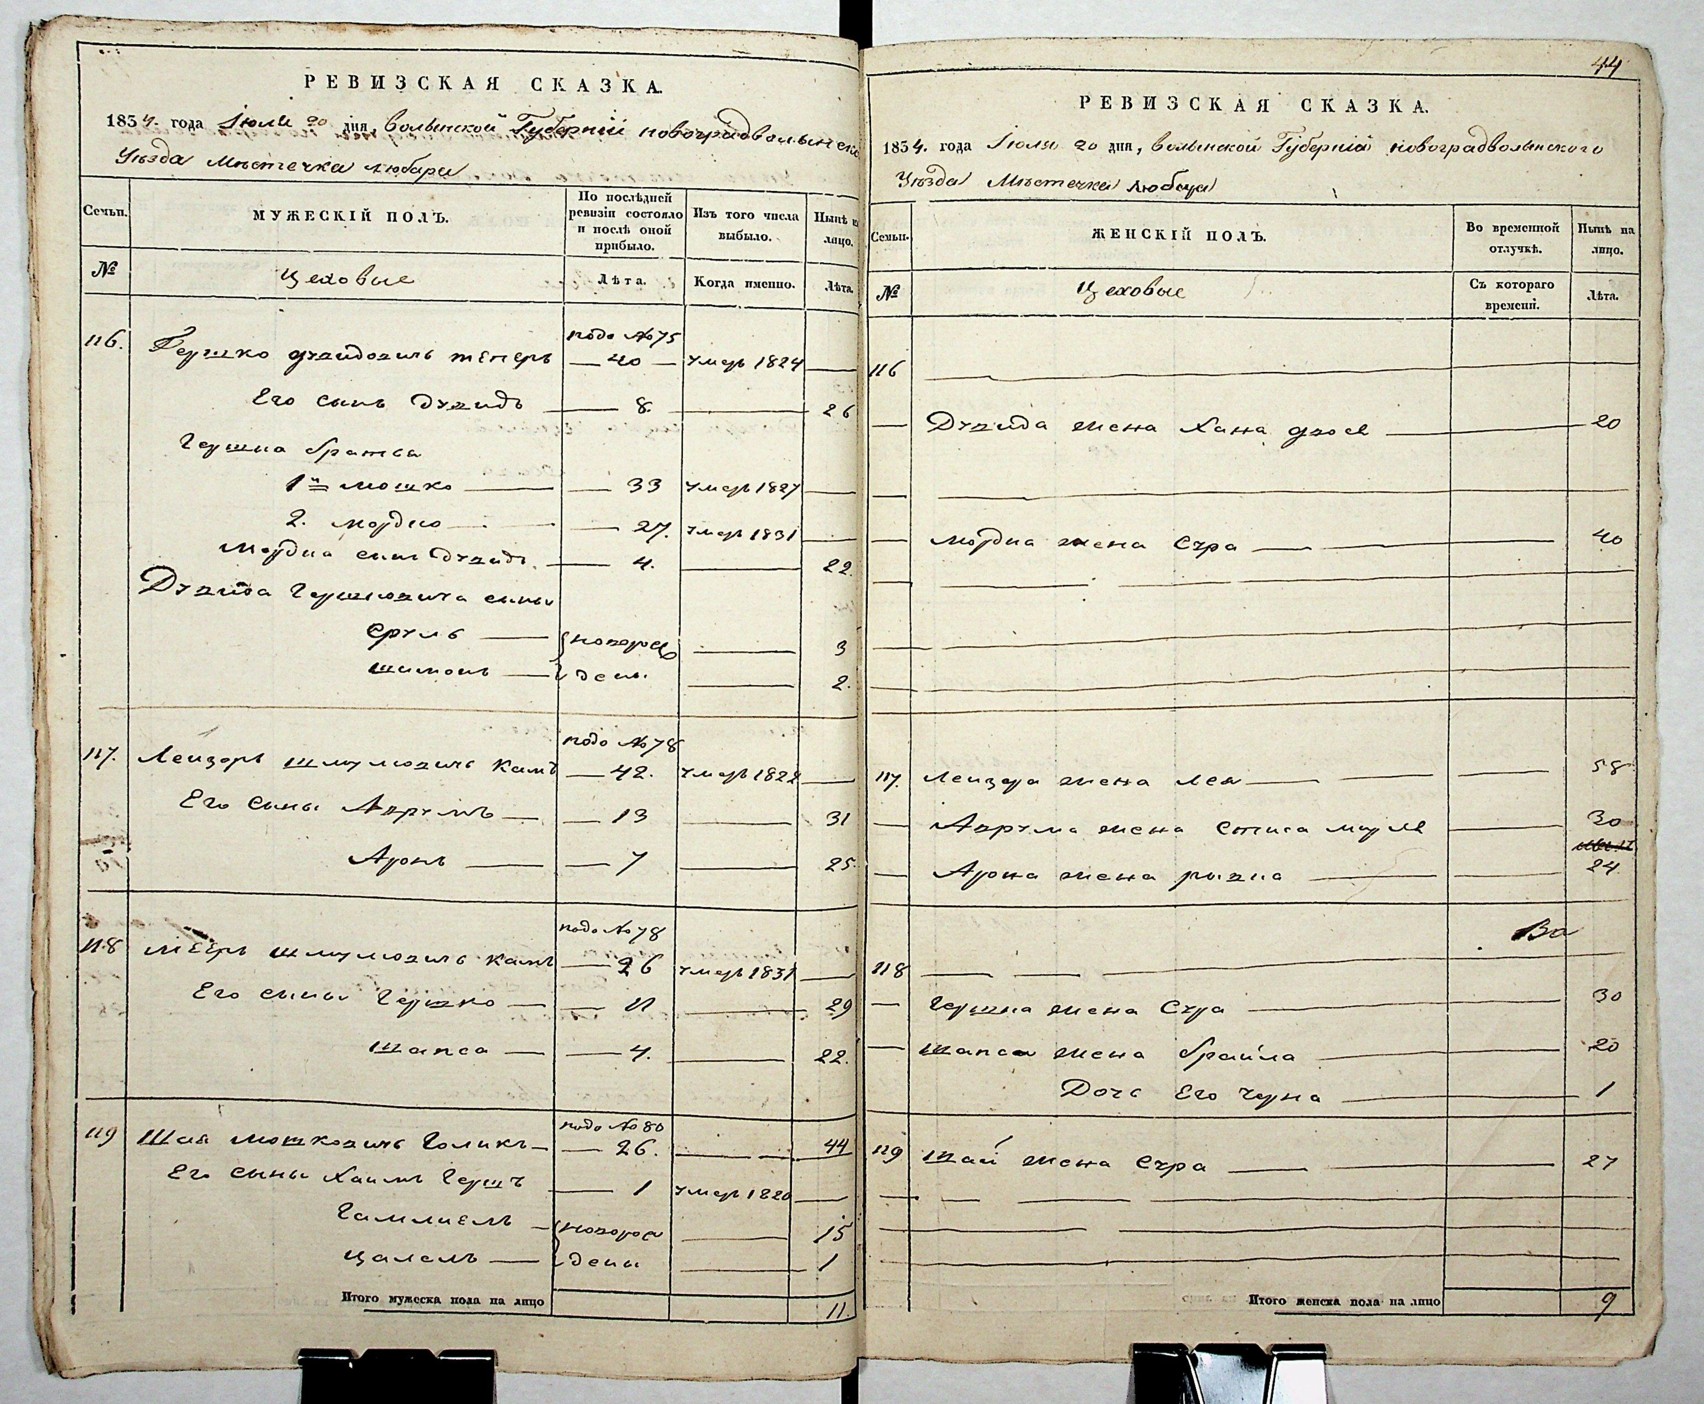 РЕВИЗСКАЯ СКАЗКА.
1834. года Іюля 20 дня, Волынской Губерніи новоградволынска
Уѣзда Мѣстечка Любара
Семьи.
МУЖЕСКІЙ ПОЛЪ.
По послѣдней ревизіи состояло и послѣ оной прибыло.
Изъ того числа выбыло.
Нынѣ на лицо.
№
Цеховые
Лѣта.
Когда именно.
Лѣта.
подо № 75
116. Гершко дувидовичь тенеръ — 40 — умеръ 1824 —
Его сынъ Дувидъ — 8. — 26
Гершка братья
1й мошко — 33 умеръ 1827 —
2. мордко — 27. умеръ 1831 —
Мордка сынъ Дувидъ. — 4. — 22.
Дувида Гершковича сыны
Сруль — новоро — 3
шимонъ — дены. — 2.
подо № 78
117. Лейзоръ шмулювичь Камъ — 42. умеръ 1822 —
Его сыны Аврумъ — 13 — 31
Аронъ — 7 — 25
подо № 78
118 Мееръ шмулювичь Камъ — 26 умеръ 1831 —
Его сыны Гершко — 11 — 29
шапса — 4. — 22.
подо № 80
119 Шая мошковичь Голикъ — 26. — 44
Его сыны Хаимъ Гершъ — 1 умеръ 1820 —
Гамлиелъ — новоро — 15
Цалелъ — дены — 1
Итого мужеска пола на лицо 11
44
РЕВИЗСКАЯ СКАЗКА.
1834. года Іюля 20 дня, Волынской Губерніи новоградволынского
Уѣзда Мѣстечка Любара
Семьи.
ЖЕНСКІЙ ПОЛЪ.
Во временной отлучкѣ.
Нынѣ на лицо.
№
Цеховые
Съ котораго времени.
Лѣта.
116 —
— Дувида жена Хана двося — 20
—
Мордка жена Сура — 40
—
—
—
117. Лейзора жена Лея — 58
— Аврума жена Стиса марля — 30
— Арона жена ривка — 24
Во
118 —
— Гершка жена Сура — 30
— Шапса жена брайла — 20
Дочь Его черна — 1
119 Шаи жена Сура — 27
—
—
—
Итого женска пола на лицо 9